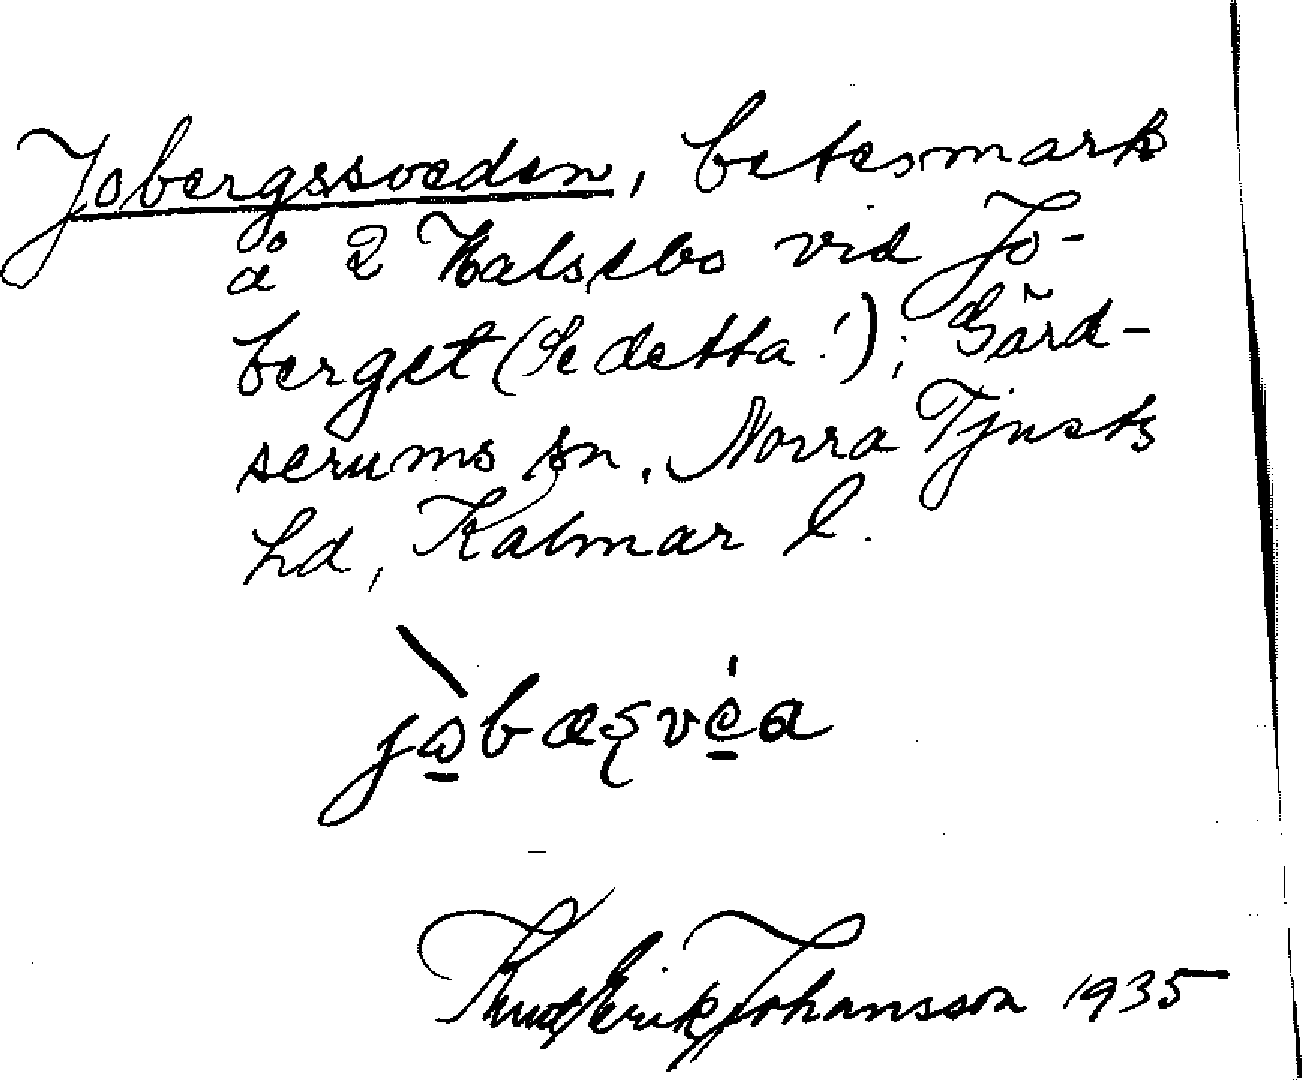 Jobergssveden, betesmark
å 2 Kalstbo vid Jo-
berget (Se detta!); Gärd-
serums sn. Norra Tjusts
hd, Kalmar l.
Knut Erik Johansson 1935